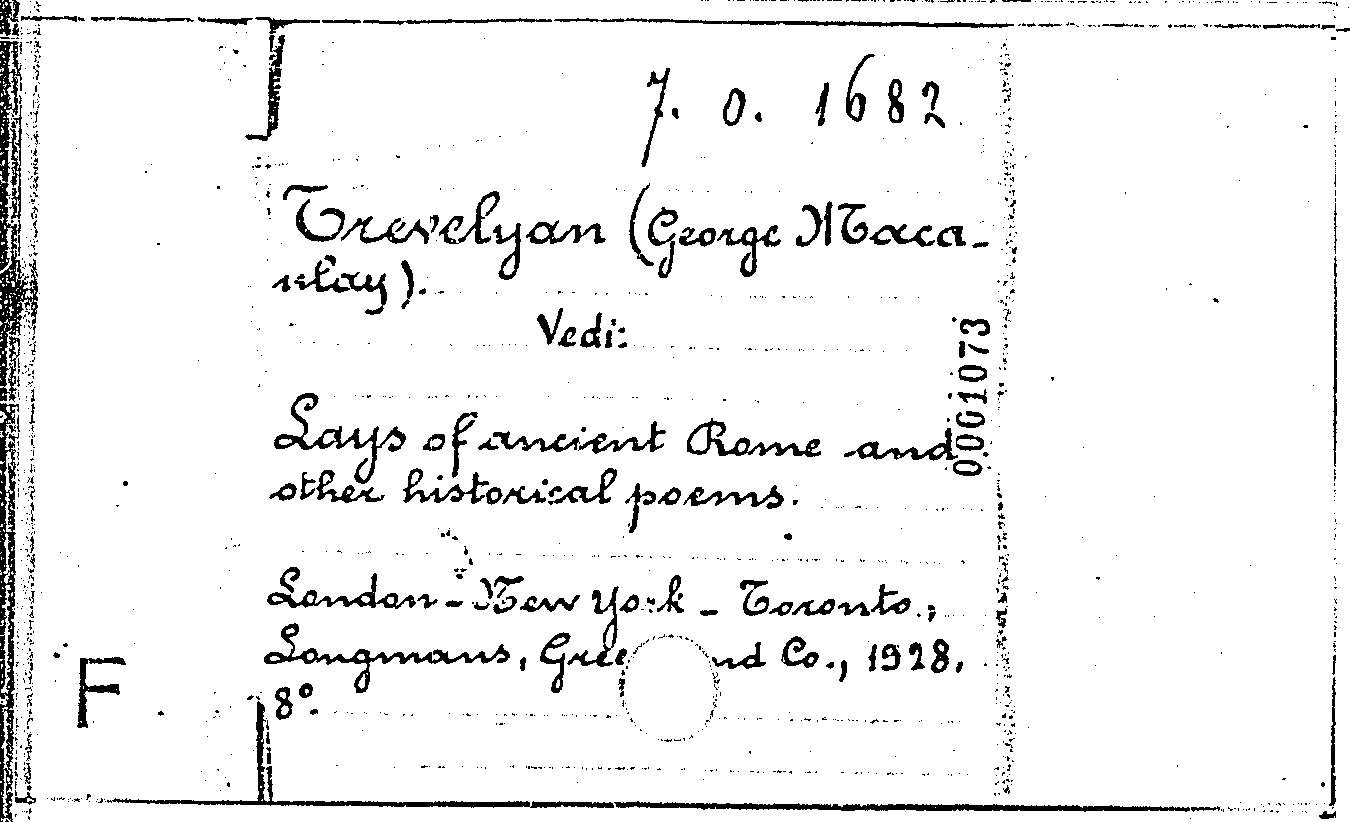 7. 0. 1682
Trevelyan (George Maca-
ulay).
Vedi:
0001073
Lays of ancient Rome and
other historical poems.
London - New York - Toronto,
Longmans, Gree nd Co., 1928.
8°.
F